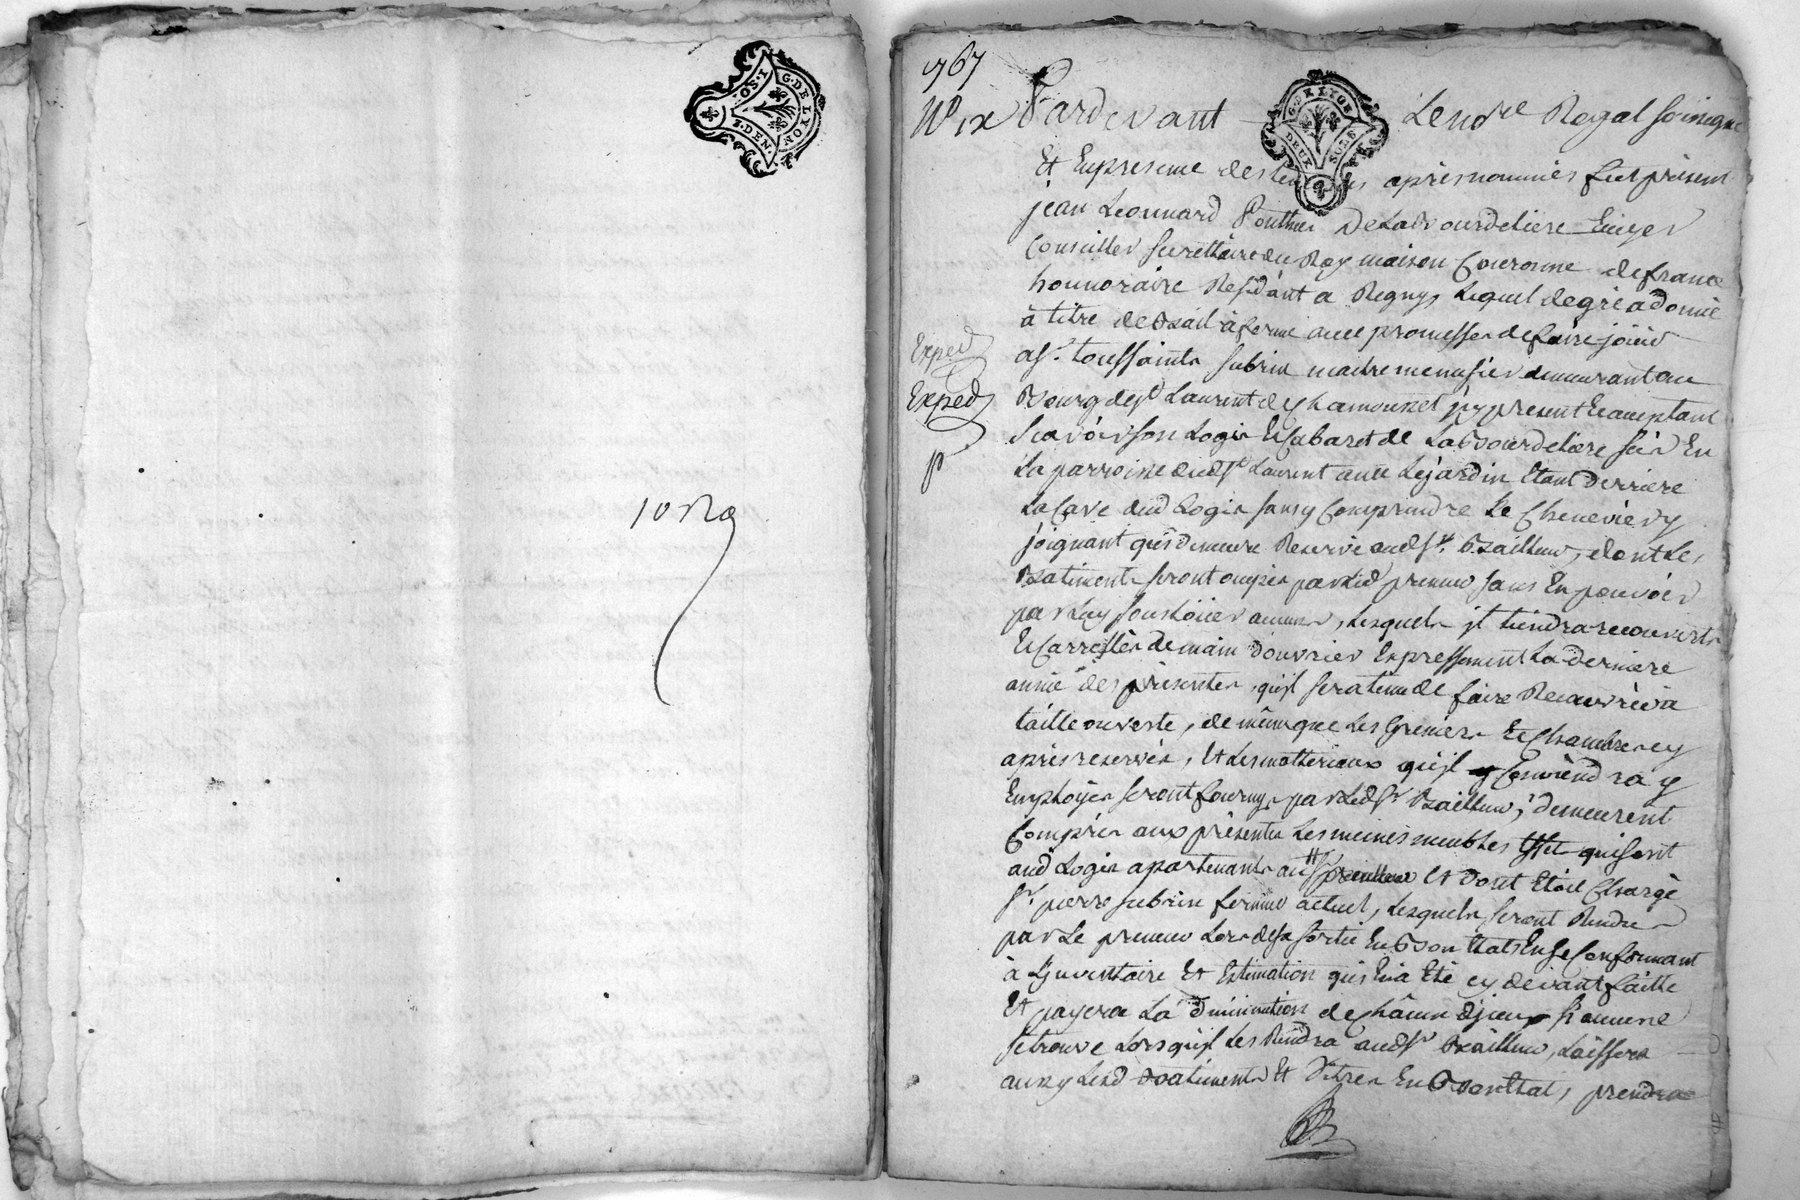 G. DE LYON
OS. 1
S. DEN.
1767
N° ix
Pardevant Le no.re Royal soussigne
G. DE LYON
DEUX SOLS
Et En presence des temoins apres nommés fut présent
jean Leonnard Pouthier De La Bourdeliere Ecuyer
Conseiller secrettaire du Roy maison Couronne de france
honnoraire Residant a Regny, Lequel de gré a donné
à titre de Bail à ferme avec promesse de faire joüir
Exped
a s.r toussaints subrin maitre menusier demeurant au
Exped
Bourg de s.t Laurent de Chamousset icy present Et acceptant
p
sçavoir son Logis Et Cabaret de La Bourdeliere sis En
La parroisse dud s.t Laurent avec Le jardin Etant derriere
La Cave dud Logis sans y Comprendre Le Chenevier y
joignant qui demeure Reservé aud s.r Bailleur, dont Les
Batiments seront occupés par Led preneur sans En pouvoir
par Luy sousLoüer aucuns, Lesquels il tiendra recouverts
Et Carrellés de main d'ouvrier Expressement La derniere
année des présentes, qu'il sera tenu de faire Recouvrir à
taille ouverte, de même que Les Greniers Et Chambres cy
après reservés, Et Les matheriaux qu'il Conviendra y
Employer seront fournys par Led s.r Bailleur, demeurent
Compris aux présentes Les mêmes meubles Effets qui sont
aud Logis apartenants au s.r Et dont Etoit Chargé
s.r pierre subrin fermier actuel, Lesquels seront Rendus
par Le preneur Lors de sa sortie En Bon Etats En se Conformant
à L'inventaire Et Estimation qui En a Eté cy devant faitte
Et payera La diminution de Chacun d'iceux si aucune
se trouve Lorsqu'il Les Rendra aud s.r Bailleur, Laissera
aussy Lesd Batiments Et Vitres En Bon Etat, prendra